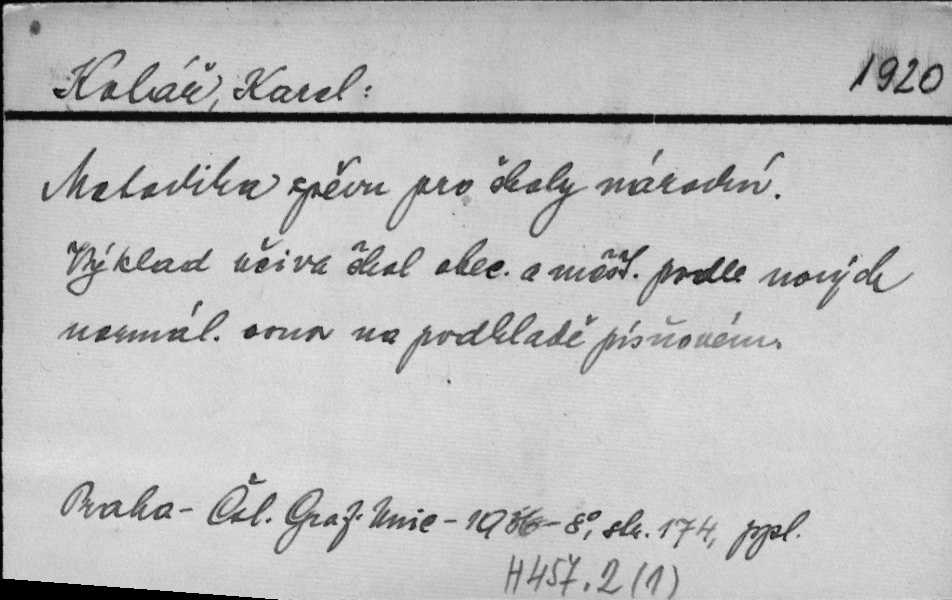 Kolář, Karel: 1920
Metodika zpěvu pro školy národní.
Výklad učiva škol obec. a měšť. podle nových
normál. osnov na podkladě písňovém.
Praha - Čsl. Graf. Unie - 19 - 8°, str. 174, ppl.
H457.2(1)